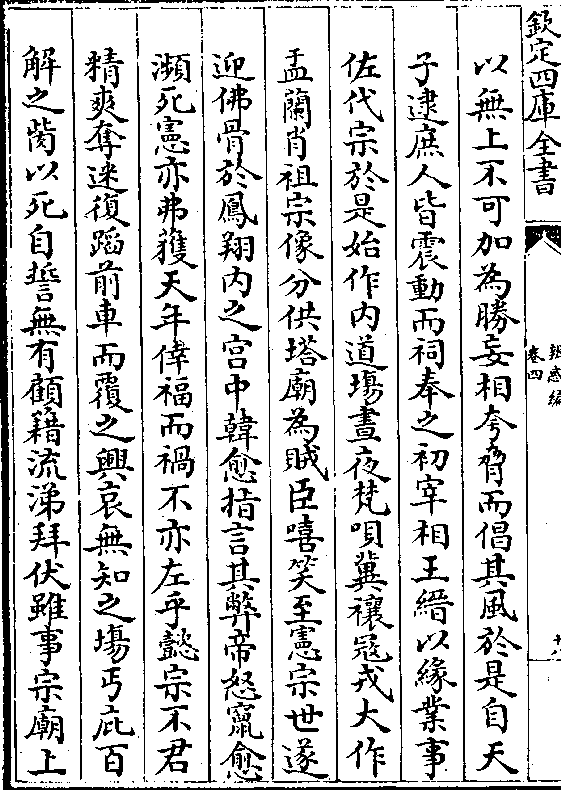 欽定四庫全書
辨惑編
卷四
十八
以無上不可加為勝妄相夸脅而倡其風於是自天
子逮庶人皆震動而祠奉之初宰相王縉以緣業事
佐代宗於是始作内道場晝夜梵唄冀禳冦戎大作
盂蘭肖祖宗像分供塔廟為賊臣嘻笑至憲宗世遂
迎佛骨於鳳翔内之宫中韓愈指言其弊帝怒竄愈
瀕死憲亦弗獲天年倖福而禍不亦左乎懿宗不君
精爽奪迷復蹈前車而覆之興哀無知之場丐庇百
解之胔以死自誓無有顧籍流涕拜伏雖事宗廟上